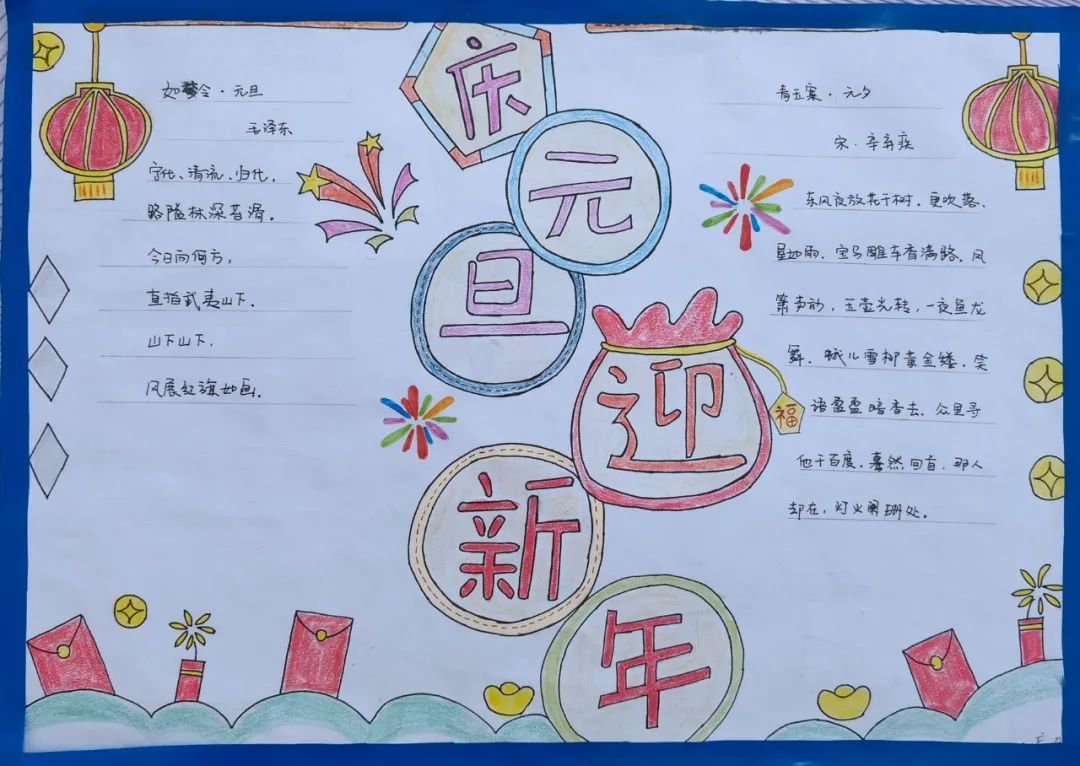 庆
元
旦
迎
福
新
年
如梦令·元旦
毛泽东
宁化、清流、归化,
路隘林深苔滑。
今日向何方,
直指武夷山下.
山下山下,
风展红旗如画.
青玉案·元夕
宋·辛弃疾
东风夜放花千树.更吹落、
星如雨.宝马雕车香满路.风
箫声动,玉壶光转,一夜鱼龙
舞.蛾儿雪柳黄金缕.笑
语盈盈暗香去.众里寻
他千百度.蓦然回首.那人
却在,灯火阑珊处。